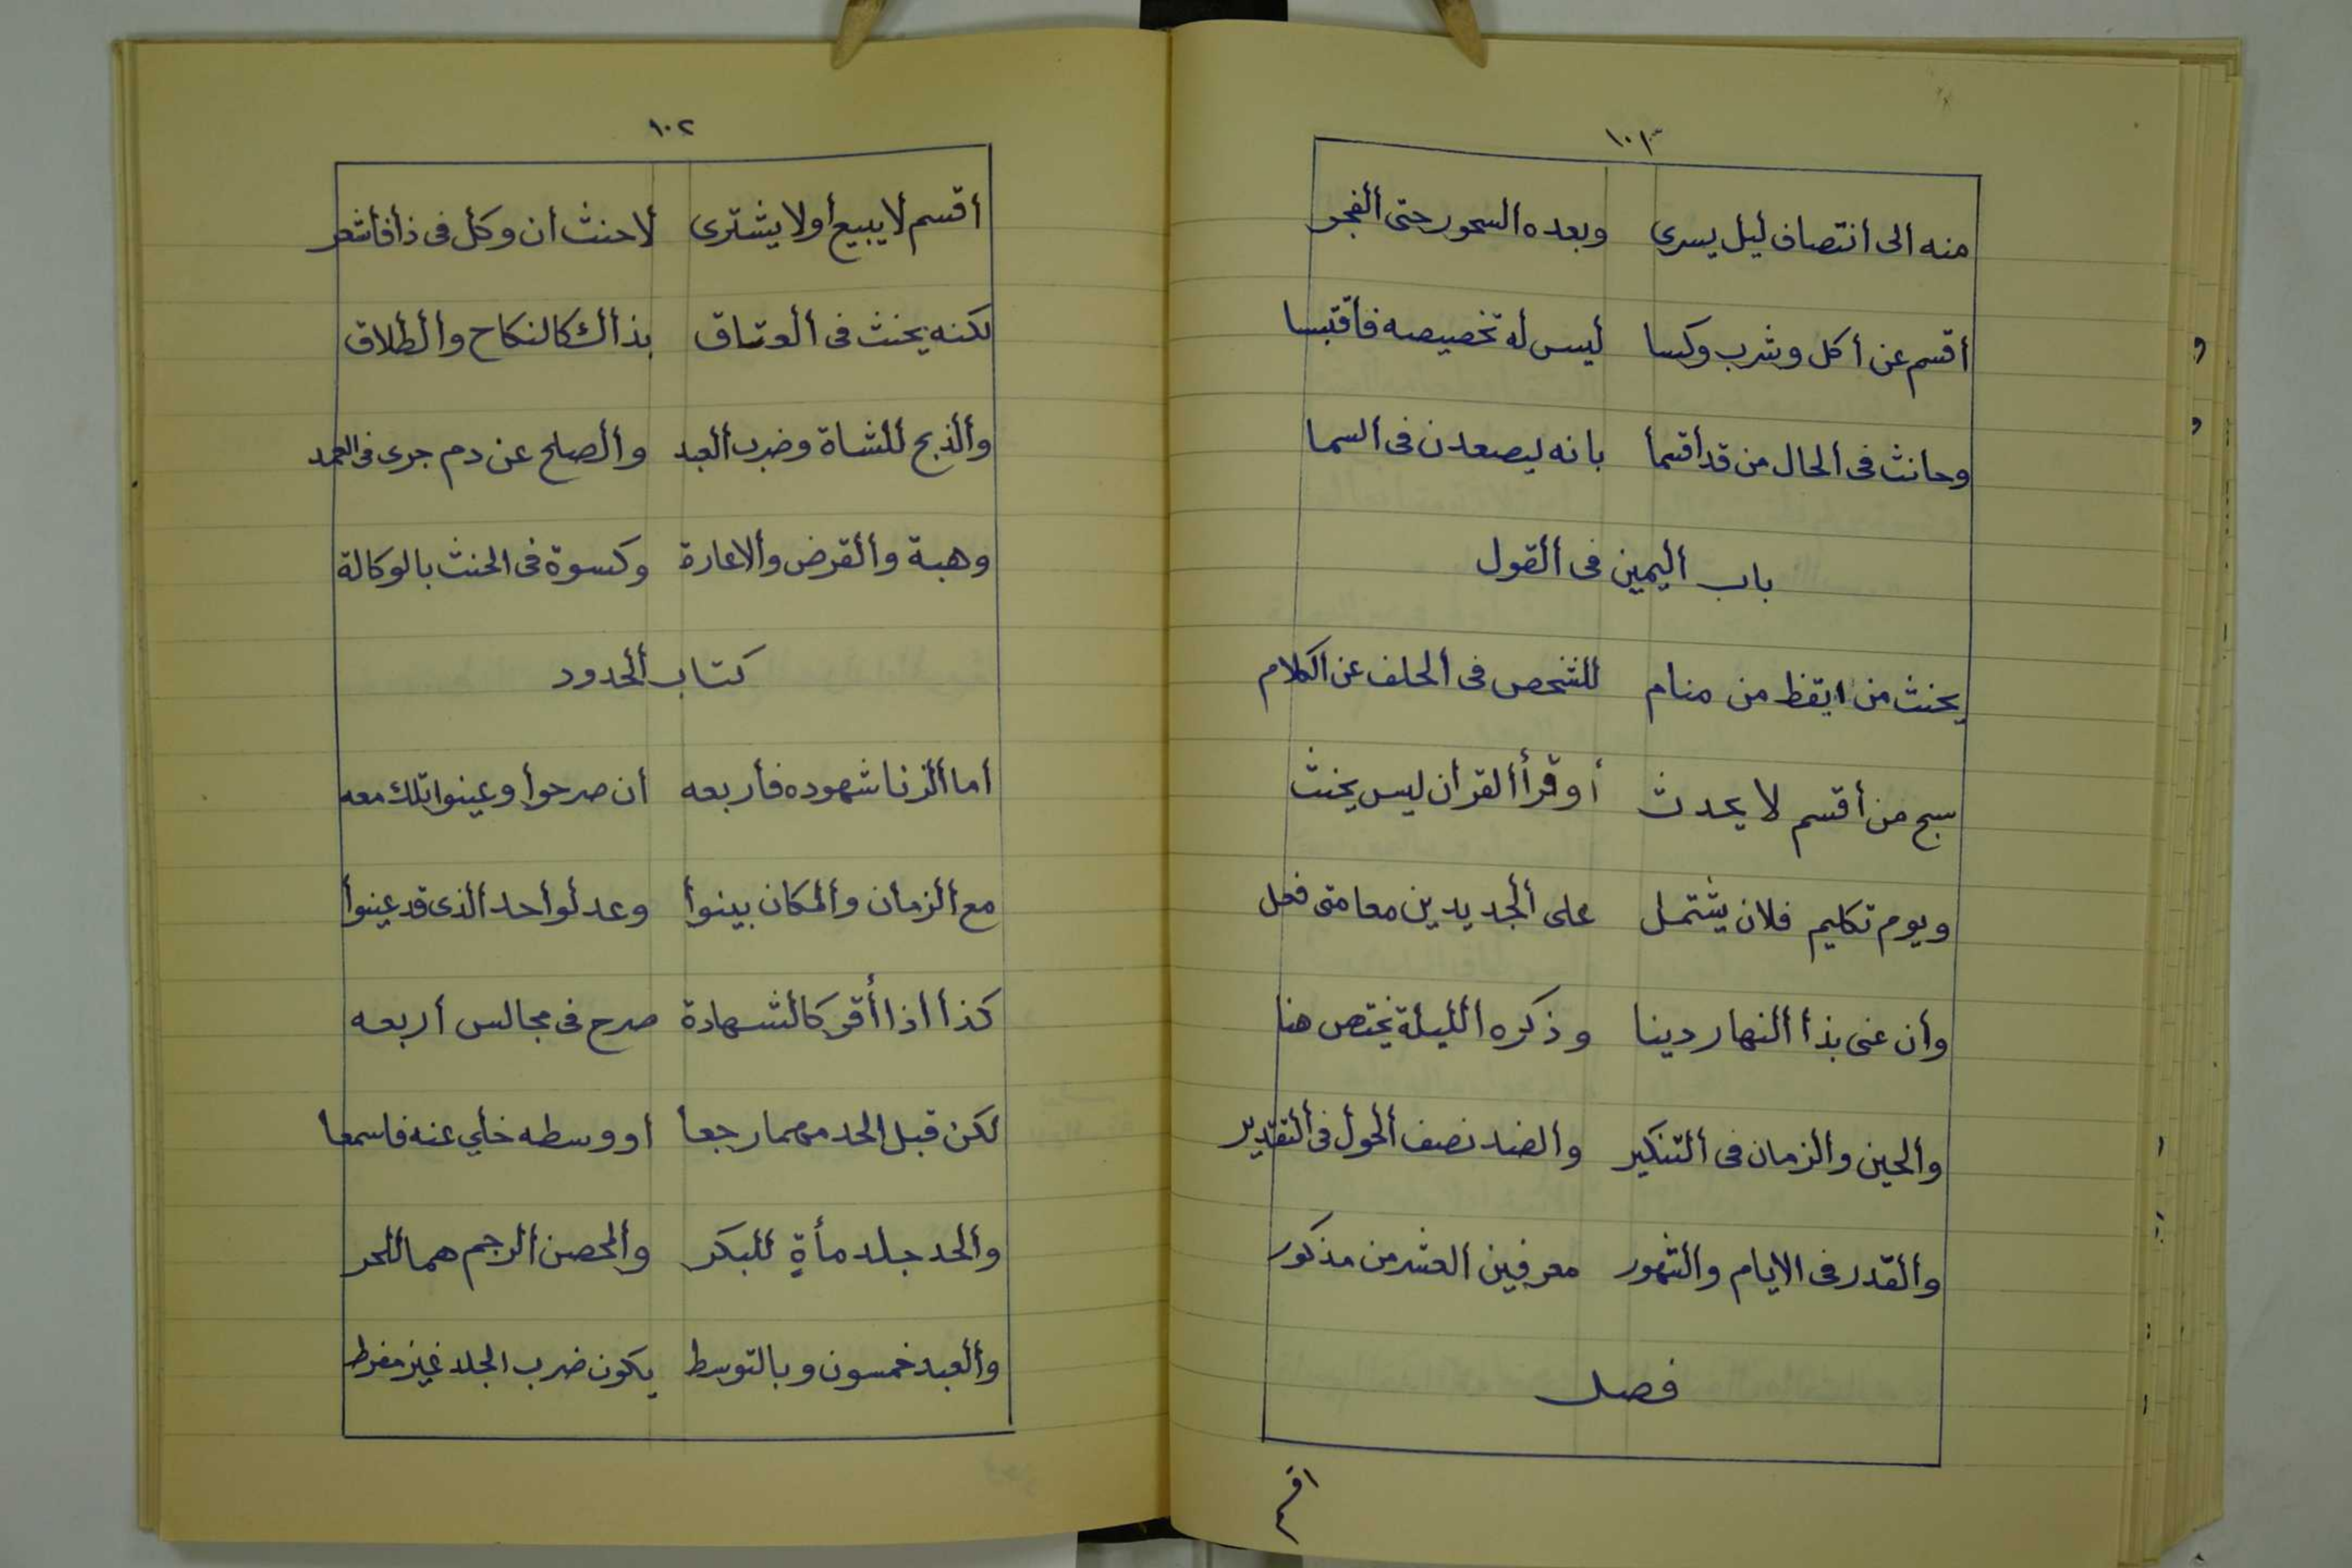 ١٠١
منه الى انتصاف ليل يسرى وبعده السحور حتى ألفجر
أقسم عن أكل وشرب وكسا ليس له تخصيصه فأقتبسا
وحانث فى ألحال من قد أقسما بانه ليصعدن فى السما
باب أليمين فى ألقول
يحنث من ايقظ من منام للشخص فى ألحلف عن الكلام
سبح من أقسم لا يحدث أو قرأ ألقرأن ليس يحنث
ويوم تكليم فلان يشتمل على ألجديدين معا متى فعل
وأن عنى بذا ألنهار دينا وذكره ألليلة يختص هنا
وألحين وألزمان فى ألتنكير والضد نصف ألحول فى ألتقدير
وألقدر فى الايام وألشهور معرفين العشر من مذكور
فصل
اقسم
١٠٢
أقسم لا يبيع أو لا يشترى لا حنث أن وكل فى ذا فأشعر
لكنه يحنث فى ألعتاق بذألك كالنكاح وألطلاق
وألذبح للشاة وضرب ألعبد وألصلح عن دم جرى فى العمد
وهبة وألقرض وألاعارة وكسوة فى الحنث بالوكالة
كتاب ألحدود
أما ألزنا شهوده فأربعه أن صرحوأ وعينوا تلك معه
مع ألزمان وألمكان بينوأ وعدلوأ حد ألذى قد عينوأ
كذا أذا أقر كألشهادة صرح فى مجالس أربعه
لكن قبل الحد مهما رجعا أو وسطه خلي عنه فاسمعا
وألحد جلد مأة للبكر وألمحصن ألرجم هما للحر
وألعبد خمسون وبالتوسط يكون ضرب الجلد غير مفرط